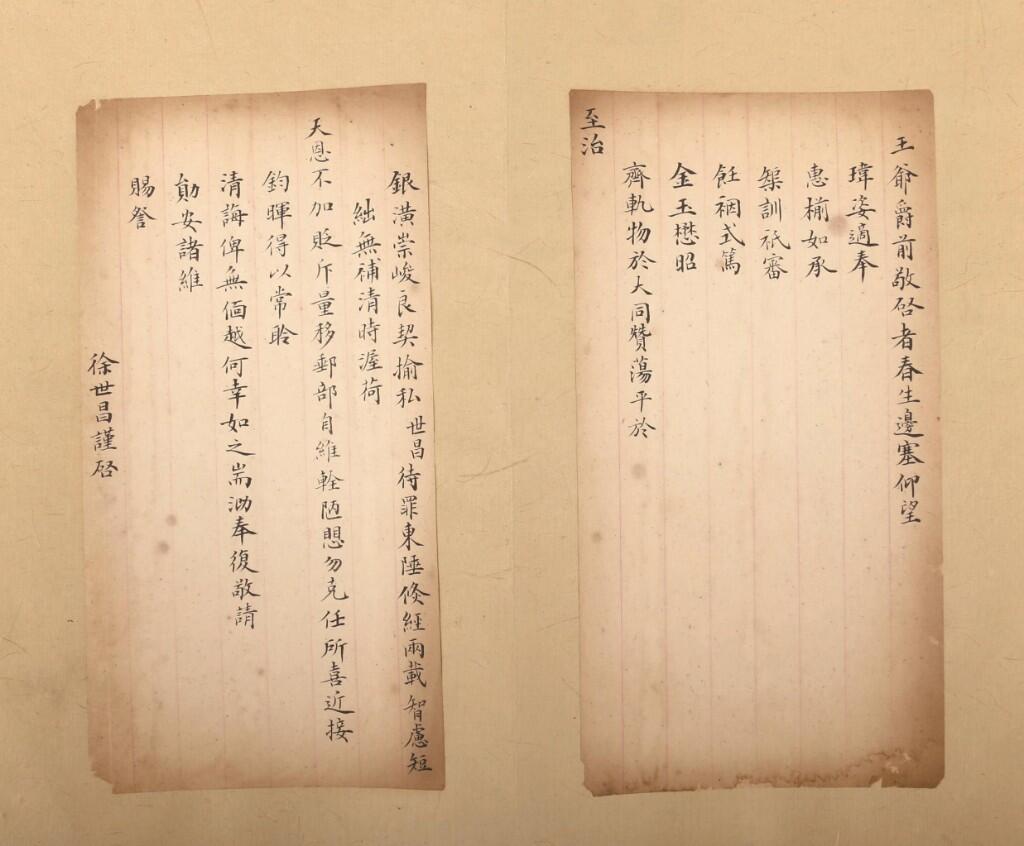 王爺爵前敬啓者春生邊塞仰望
瑋姿適奉
惠椾如承
榘訓祇審
飪裀式篤
金玉懋昭
齊軌物於大同贊蕩平於
至治
銀潢崇峻良契揄私世昌待罪東陲倏經兩載智慮短
絀無補清時渥荷
天恩不加貶斥量移郵部自維輇陋愳勿克任所喜近接
鈞暉得以常聆
清誨俾無偭越何幸如之耑泐奉復敬請
勛安諸維
賜詧
徐世昌謹啓